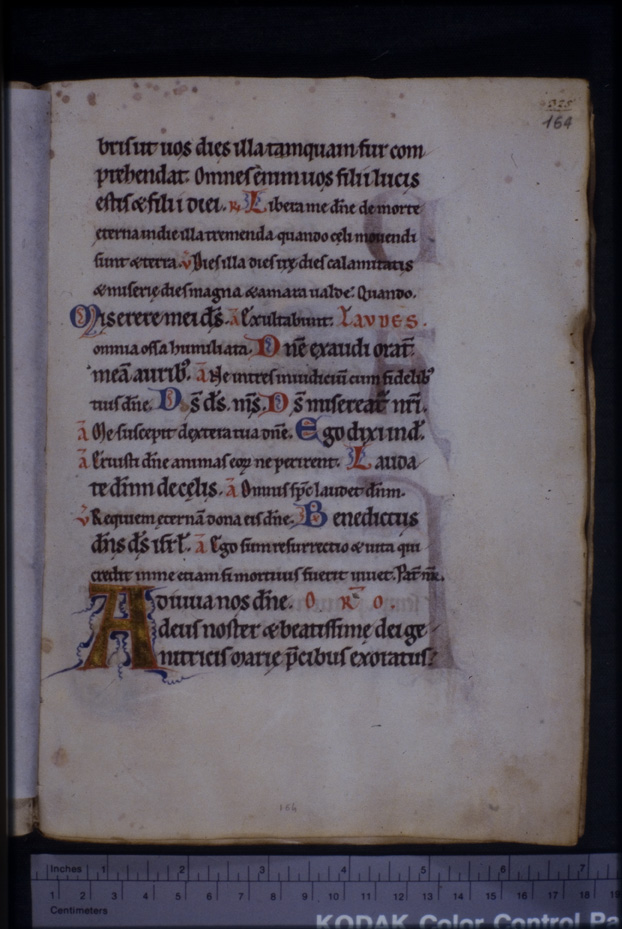 325
164
bris ut uos dies illa tamquam fur com
prehendat. Omnes enim uos filii lucis
estis & filii diei. R. Libera me dñe de morte
eterna in die illa tremenda quando cęli mouendi
sunt & terra. V Dies illa dies irę dies calamitatis
& miserię dies magna & amara ualde. Quando.
Miserere mei dš. ā Exultabunt. LAVDES.
omnia ossa humiliata. Dnē exaudi orat̄
meā aurib⁹. ā Ne intres in iudiciū cum fidelib⁹
tuis dñe. Dš dš mš. Dš misereat̄ nr̄i.
ā Me suscepit dextera tua dñe. Ego dixi in d̄.
ā Eruisti dñe animas eoꝝ ne perirent. Lauda
te dñm de cęlis. ā Omnis sp̄c laudet dñm.
V Requiem eternā dona eis dñe. Benedictus
dñs dš isrł. ā Ego sum resurrectio & uita qui
credit in me etiam si mortuus fuerit uiuet. Pat̄ nr̄.
Adiuua nos dñe. O R̄ O.
deus noster & beatissime dei ge
nitricis marie p̄cibus exoratus.
164
Inches 1 2 3 4 5 6 7
1 2 3 4 5 6 7 8 9 10 11 12 13 14 15 16 17 18 19
Centimeters
KODAK Color Control Pa